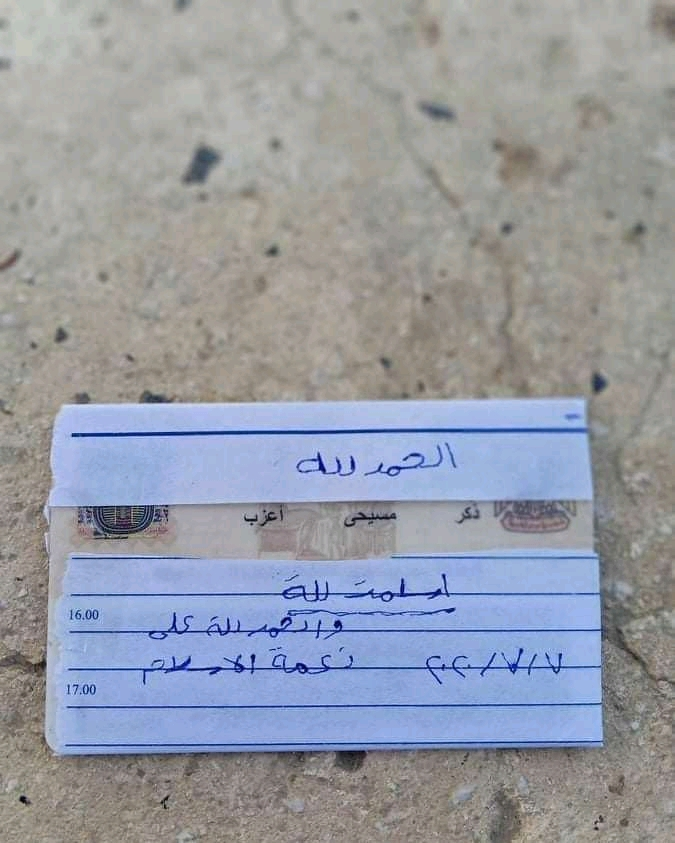 الحمد لله
ذكر مسيحى أعزب
اسلمت لله
16.00
والحمد لله على
نعمة الاسلام ٢٠٢٠/٧/٧
17.00